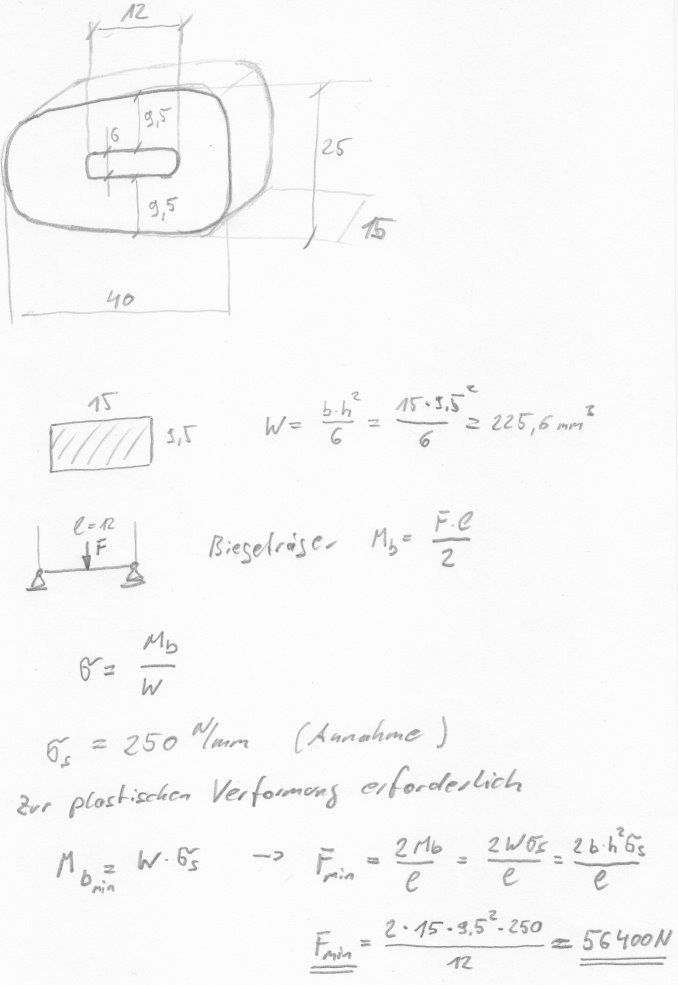 12
6
9,5
25
9,5
15
40
15
9,5
W = b·h²/6 = 15·9,5²/6 = 225,6 mm³
l=12
F
Biegeträger M_b = F·l/2
σ = M_b/W
σ_s = 250 N/mm (Annahme)
Zur plastischen Verformung erforderlich
M_b_min = W·σ_s → F_min = 2M_b/l = 2Wσ_s/l = 2b·h²σ_s/l
F_min = 2·15·9,5²·250/12 = 56400N